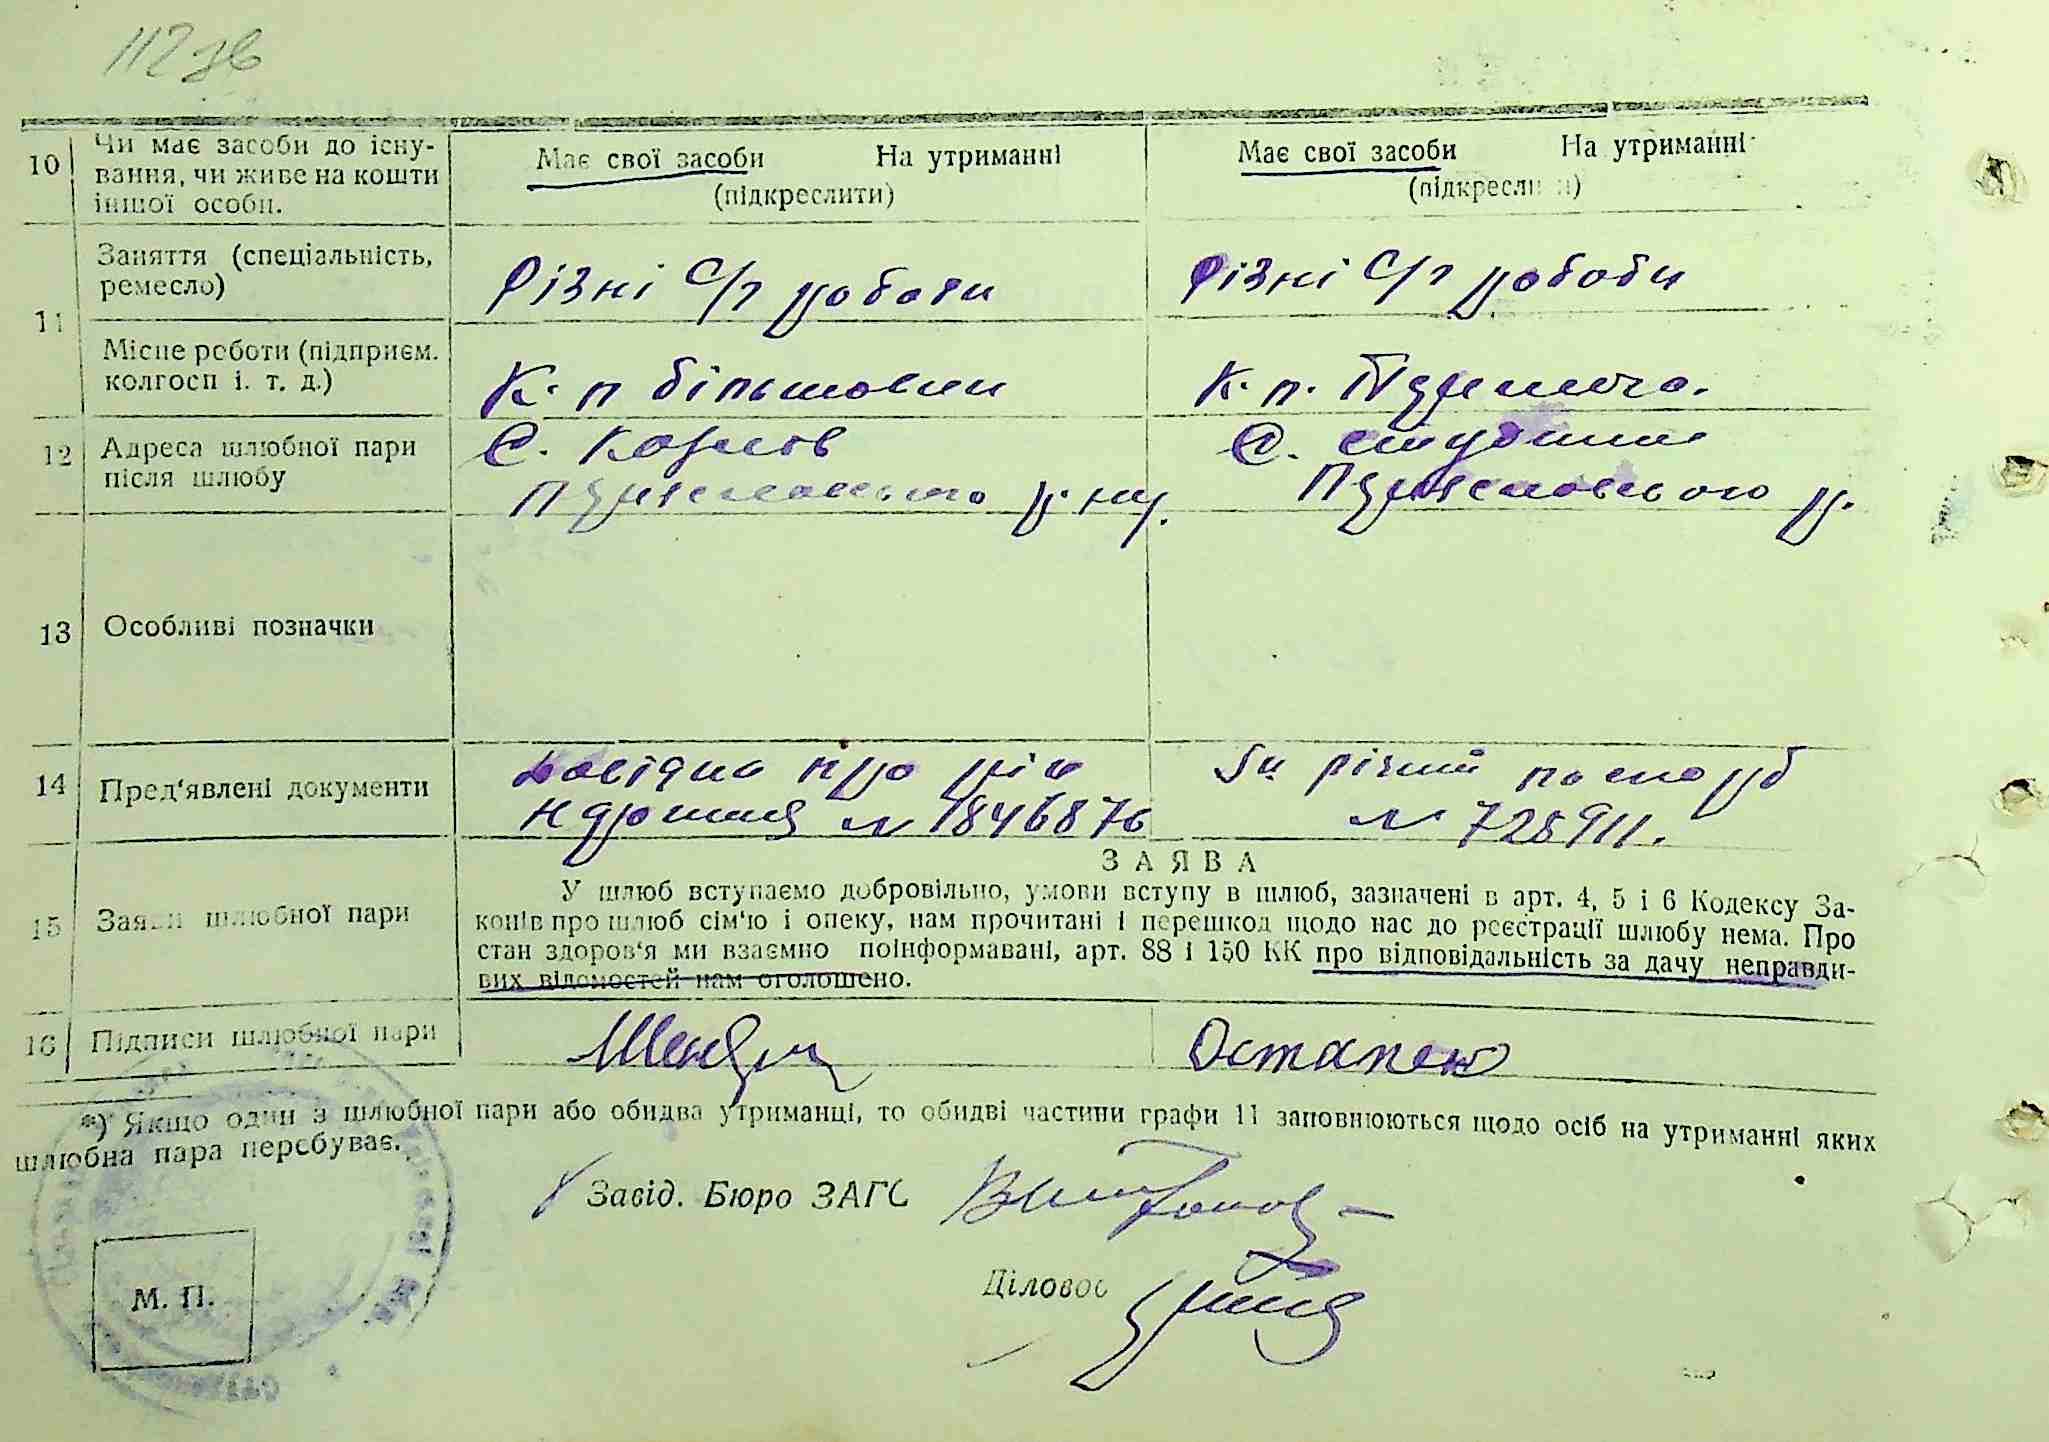 112 зв
10 Чи має засоби до існу-
вання, чи живе на кошти
іншої особи.
Має свої засоби На утриманні
(підкреслити)
Має свої засоби На утриманні
(підкреслити)
11 Заняття (спеціальність,
ремесло)
Різні С/г роботи
Різні С/г роботи
Місце роботи (підприєм.
колгосп і. т. д.)
К. п більшовик
К. п.
12 Адреса шлюбної пари
після шлюбу
С.
р-ну.
С.
р.
13 Особливі позначки
14 Пред'явлені документи
Довідка про
№ 1846876
5и річний паспорт
№ 728911.
15 Заяви шлюбної пари
ЗАЯВА
У шлюб вступаємо добровільно, умови вступу в шлюб, зазначені в арт. 4, 5 і 6 Кодексу За-
конів про шлюб сім'ю і опеку, нам прочитані і перешкод щодо нас до реєстрації шлюбу нема. Про
стан здоров'я ми взаємно поінформавані, арт. 88 і 150 КК про відповідальність за дачу неправди-
вих відомостей нам оголошено.
16 Підписи шлюбної пари
Остапенко
*) Якщо один з шлюбної пари або обидва утриманці, то обидві частини графи 11 заповнюються щодо осіб на утриманні яких
шлюбна пара перебуває.
Завід. Бюро ЗАГС
Діловос
М. П.